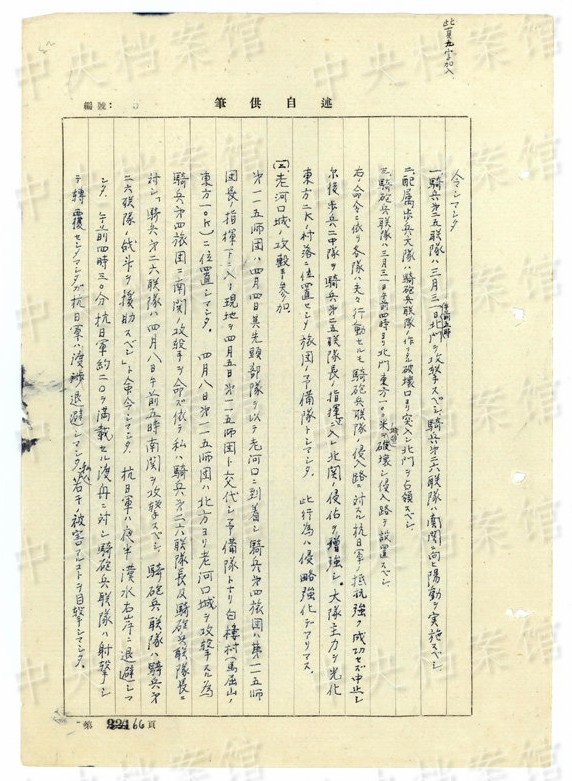 此頁九字加入
述自供筆
編號:
令シマシタ
一、騎兵第二五联隊ハ三月三一日午前五時北門ヲ攻撃スベシ、騎兵第二六联隊ハ南関ニ向ヒ陽動ヲ実施スベシ
二、配属歩兵大隊ハ騎砲兵联隊ノ作ラレ破壊口ヨリ突入シ北門ヲ占領スベシ
三、騎砲兵联隊ハ三月三一日午前四時ヨリ北門東方一〇〇米ノ城壁ヲ破壊シ侵入路ヲ設置スベシ
右ノ命令ニ依リ各隊ハ夫々行動セルモ騎砲兵联隊ノ侵入路ニ対スル抗日軍ノ抵抗強ク成功セズ中止シ
尓後歩兵二中隊ヲ騎兵第二五联隊長ノ指揮ニ入レ北関ノ侵佔ヲ増強シ、大隊主力ヲ光化
東方二Kノ村落ニ位置セシメ旅団ノ予備隊トシマシタ。 此行為ハ侵略強化デアリマス。
(二)老河口城ノ攻撃ニ参加
第一一五師団ハ四月四日其先頭部隊ヲ以テ老河口ニ到着シ騎兵第四旅団ハ第一一五師
団長ノ指揮下ニ入リ現地ヲ四月五日第一一五師団ト交代シ予備隊トナリ白樓村(馬屈山ノ
東方一〇K)ニ位置シマシタ。 四月八日第一一五師団ハ北方ヨリ老河口城ヲ攻撃スル為
騎兵第四旅団ニ南関攻撃ヲ命ズ依テ私ハ騎兵第二六联隊長及騎砲兵联隊長ニ
対シ「騎兵第二六联隊ハ四月八日午前五時南関ヲ攻撃スベシ、騎砲兵联隊ハ騎兵第
二六联隊ノ战斗ヲ援助スベシ」ト命令シマシタ 抗日軍ハ夜半漢水右岸ニ退避シマ
シタ、午前四時三〇分抗日軍約二〇ヲ満載セル渡舟ニ対シ騎砲兵联隊ハ射撃シ
テ轉覆セシメマシタガ抗日軍ハ渡渉退避シマシタ私ハ若干ノ被害アルコトヲ目撃シマシタ。
第 22466 頁
中央档案馆